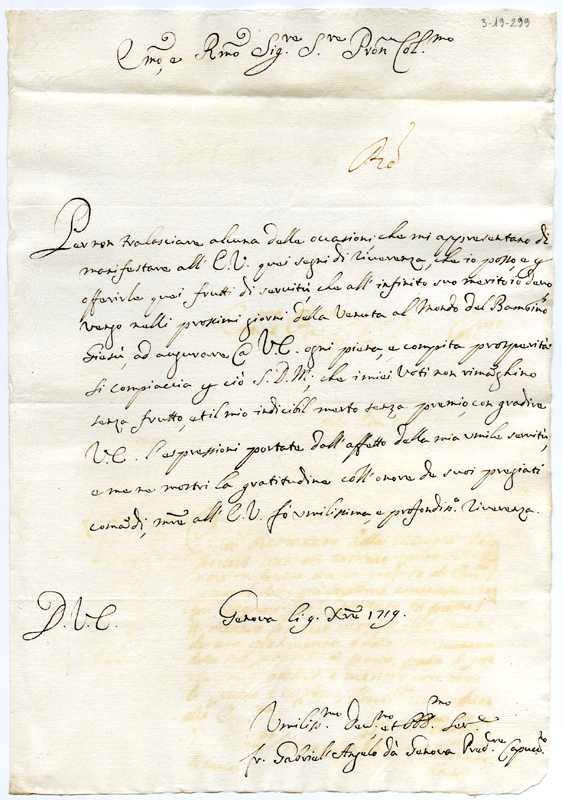 3-19-299
Em̃o, e Rmõ Sig.re S.re Prõn Col.mo
Per non tralasciare alcuna delle occasioni, che mi appresentano di
manifestare all' E.V. quei segni di riverenza, che io posso, e p
offerirle quei frutti di servitù, che all' infinito suo merito io devo
vengo nelli prossimi giorni della Venuta al Mondo del Bambino
Giesù, ad augurare @ V.E. ogni piena, e compita prosperità
Si compiaccia p ciò S.D.M., che i miei Voti non rimanghino
senza frutto, et il mio indicibil merto senza premio, con gradire
V.E. l'espressioni portate dall' affetto della mia umile servitù,
e me ne mostri la gratitudine coll' onore de suoi pregiati
comãdi, mr̃e all' E.V. fò umilissima, e profondiss.a riverenza.
D.V.E.
Genova li 9. Xbre 1719.
Umiliss.mo Dev.mo et Obb.mo Ser.e
fr. Gabriel' Angelo da Genova Pred.re Capucc.no